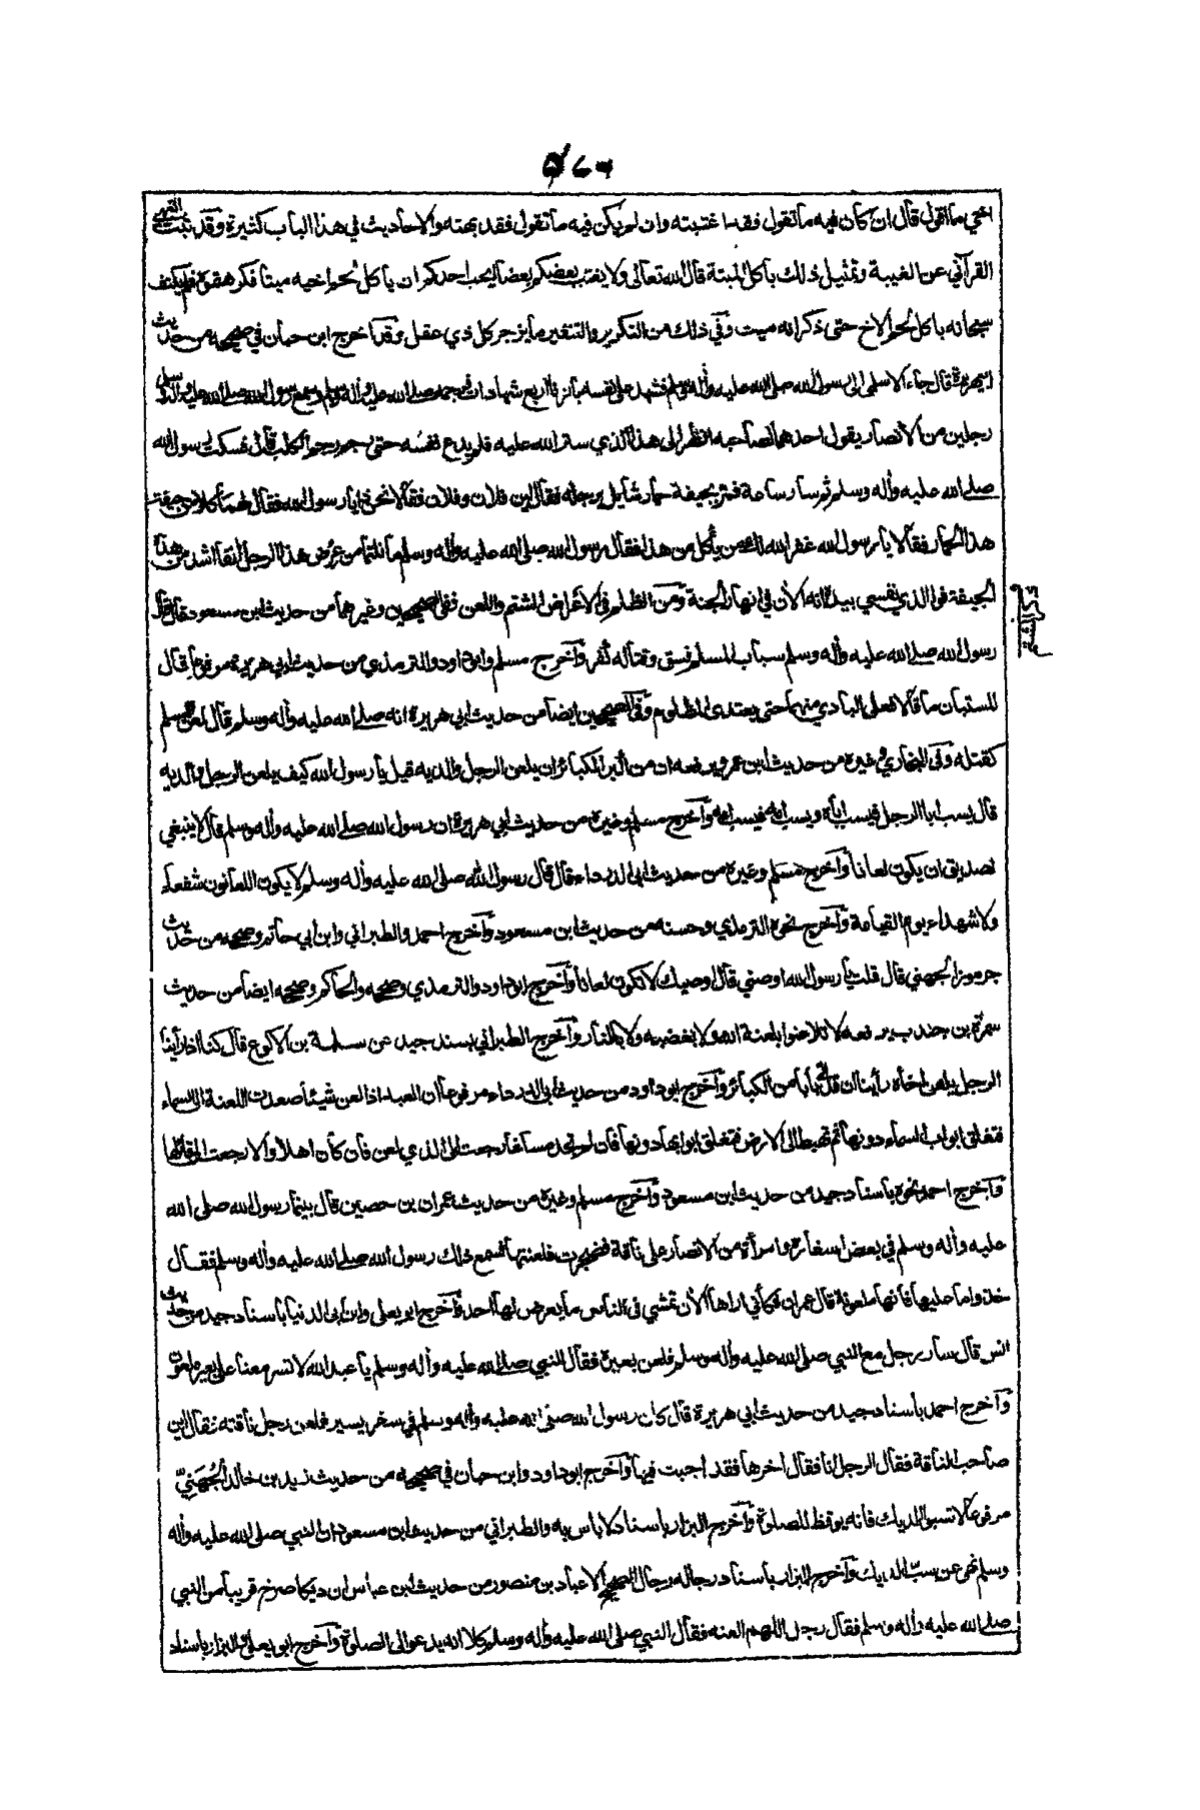 اخي ما اقول قال ان كان فيه ما تقول فقد اغتبته وان لم يكن فيه ما تقول فقد بهته والاحاديث في هذا الباب كثيرة وقد ثبت النهي
القرآني عن الغيبة وتمثيل ذلك باكل الميتة قال الله تعالى ولا يغتب بعضكم بعضا ايحب احدكم ان ياكل لحم اخيه ميتا فكرهتموه فلم يكتف
سبحانه باكل لحم الاخ حتى ذكر انه ميت وفي ذلك من التكريه والتنفير ما يزجر كل ذي عقل وقد اخرج ابن حبان في صحيحه من حديث
ابي هريرة قال جاء الاسلمي الى رسول الله صلى الله عليه وآله وسلم فشهد على نفسه بالزنا اربع شهادات فرجمه صلى الله عليه وآله وسلم فسمع رسول الله صلى الله عليه وآله وسلم
رجلين من الانصار يقول احدهما لصاحبه انظر الى هذا الذي ستر الله عليه فلم يدع نفسه حتى رجم رجم الكلب قال فسكت رسول الله
صلى الله عليه وآله وسلم ثم سار ساعة فمر بجيفة حمار شايل برجله فقال اين فلان وفلان فقالا نحن ذا يا رسول الله فقال لهما كلا من جيفة
هذا الحمار فقالا يا رسول الله غفر الله لك من ياكل من هذا فقال رسول الله صلى الله عليه وآله وسلم ما نلتما من عرض هذا الرجل انفا اشد من هذه
الجيفة فوالذي نفسي بيده انه الان في انهار الجنة ومن الظلم في الاعراض الشتم واللعن ففي الصحيحين وغيرهما من حديث ابن مسعود قال قال
رسول الله صلى الله عليه وآله وسلم سباب المسلم فسق وقتاله كفر وآخرج مسلم وابوداود والترمذي من حديث ابي هريرة مرفوعا قال
المستبان ما قالا فعلى البادي منهما حتى يعتدى المظلوم وفي الصحيحين ايضا من حديث ابي هريرة انه صلى الله عليه وآله وسلم قال لعن المسلم
كقتله وفي البخاري وغيره من حديث ابن عمرو يرفعه ان من اكبر الكبائر ان يلعن الرجل والديه قيل يا رسول الله كيف يلعن الرجل والديه
قال يسب ابا الرجل فيسب اباه ويسب امه فيسب امه وآخرج مسلم وغيره من حديث ابي هريرة ان رسول الله صلى الله عليه وآله وسلم قال لا ينبغي
لصديق ان يكون لعانا وآخرج مسلم وغيره من حديث ابي الدرداء قال قال رسول الله صلى الله عليه وآله وسلم لا يكون اللعانون شفعاء
ولا شهداء يوم القيامة وآخرج نحوه الترمذي وحسنه من حديث ابن مسعود وآخرج احمد والطبراني وابن ابي حاتم وصححه من حديث
جرموز الجهني قال قلت يا رسول الله اوصني قال اوصيك لا تكون لعانا وآخرج ابوداود والترمذي وصححه والحاكم وصححه ايضا من حديث
سمرة بن جندب يرفعه لا تلاعنوا بلعنة الله ولا بغضبه ولا بالنار وآخرج الطبراني بسند جيد عن سلمة بن الاكوع قال كنا اذا رأينا
الرجل يلعن اخاه رأينا ان قد اتى بابا من الكبائر وآخرج ابوداود من حديث ابي الدرداء مرفوعا ان العبد اذا لعن شيئا صعدت اللعنة الى السماء
فتغلق ابواب السماء دونها ثم تهبط الى الارض فتغلق ابوابها دونها فان لم تجد مساغا رجعت الى الذي لعن فان كان اهلا والا رجعت الى قائلها
وآخرج احمد نحوه باسناد جيد من حديث ابن مسعود وآخرج مسلم وغيره من حديث عمران بن حصين قال بينما رسول الله صلى الله
عليه وآله وسلم في بعض اسفاره وامرأة من الانصار على ناقة فضجرت فلعنتها فسمع ذلك رسول الله صلى الله عليه وآله وسلم فقال
خذوا ما عليها فانها ملعونة قال عمران فكأني اراها الان تمشي في الناس ما يعرض لها احد وآخرج ابو يعلى وابن ابي الدنيا باسناد جيد من حديث
انس قال سار رجل مع النبي صلى الله عليه وآله وسلم فلعن بعيره فقال النبي صلى الله عليه وآله وسلم يا عبد الله لا تسر معنا على بعير ملعون
وآخرج احمد باسناد جيد من حديث ابي هريرة قال كان رسول الله صلى الله عليه وآله وسلم في سفر يسير فلعن رجل ناقته فقال اين
صاحب الناقة فقال الرجل انا فقال اخرها فقد اجبت فيها وآخرج ابوداود وابن حبان في صحيحه من حديث زيد بن خالد الجهني
مرفوعا لا تسبوا الديك فانه يوقظ للصلوة وآخرج البزار باسناد لا باس به والطبراني من حديث ابن مسعود ان النبي صلى الله عليه وآله
وسلم نهى عن سب الديك وآخرج البزار باسناد رجاله رجال الصحيح الا عباد بن منصور من حديث ابن عباس ان ديكا صرخ قريبا من النبي
صلى الله عليه وآله وسلم فقال رجل اللهم العنه فقال النبي صلى الله عليه وآله وسلم كلا انه يدعو الى الصلوة وآخرج ابو يعلى والبزار باسناد